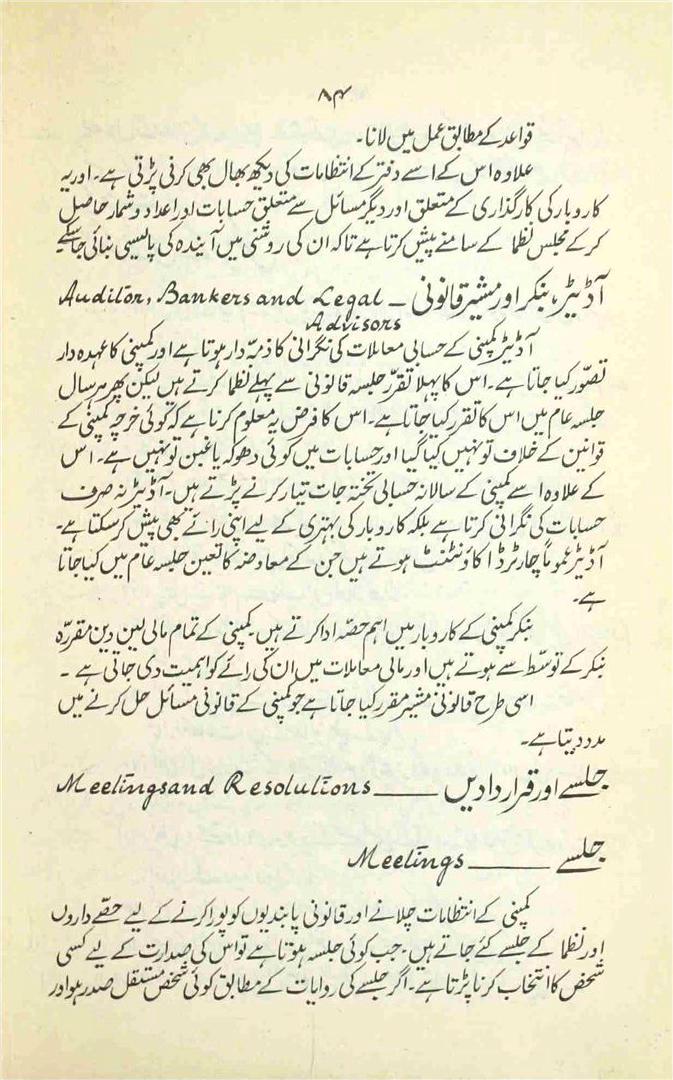 ۸۴
قواعد کے مطابق عمل میں لانا۔
علاوہ اس کے اسے دفتر کے انتظامات کی دیکھ بھال بھی کرنی پڑتی ہے۔ اور یہ
کاروبار کی کارگذاری کے متعلق اور دیگر مسائل سے متعلق حسابات اور اعداد و شمار حاصل
کر کے مجلس نظما کے سامنے پیش کرتا ہے تاکہ ان کی روشنی میں آیندہ کی پالیسی بنائی جا سکے
آڈیٹر، بنکر اور مشیر قانونی – Auditor, Bankers and Legal
Advisors
آڈیٹر کمپنی کے حسابی معاملات کی نگرانی کا ذمہ دار ہوتا ہے اور کمپنی کا عہدہ دار
تصوّر کیا جاتا ہے۔ اس کا پہلا تقرر جلسہ قانونی سے پہلے نظما کرتے ہیں لیکن پھر ہر سال
جلسہ عام میں اس کا تقرر کیا جاتا ہے۔ اس کا فرض یہ معلوم کرنا ہے کہ کوئی خرچہ کمپنی کے
قوانین کے خلاف تو نہیں کیا گیا اور حسابات میں کوئی دھوکہ یا غبن تو نہیں ہے۔ اس
کے علاوہ اسے کمپنی کے سالانہ حسابی تختہ جات تیار کرنے پڑتے ہیں۔ آڈیٹر نہ صرف
حسابات کی نگرانی کرتا ہے بلکہ کاروبار کی بہتری کے لیے اپنی رائے بھی پیش کر سکتا ہے۔
آڈیٹر عموماً چارٹرڈ اکاؤنٹنٹ ہوتے ہیں جن کے معاوضہ کا تعین جلسہ عام میں کیا جاتا
ہے۔
بنکر کمپنی کے کاروبار میں اہم حصّہ ادا کرتے ہیں۔ کمپنی کے تمام مالی لین دین مقررہ
بنکر کے توسّط سے ہوتے ہیں اور مالی معاملات میں ان کی رائے کو اہمیت دی جاتی ہے۔
اسی طرح قانونی مشیر مقرر کیا جاتا ہے جو کمپنی کے قانونی مسائل حل کرنے میں
مدد دیتا ہے۔
جلسے اور قراردادیں —— Meetings and Resolutions
جلسے —— Meetings
کمپنی کے انتظامات چلانے اور قانونی پابندیوں کو پورا کرنے کے لیے حصّے داروں
اور نظما کے جلسے کئے جاتے ہیں۔ جب کوئی جلسہ ہوتا ہے تو اس کی صدارت کے لیے کسی
شخص کا انتخاب کرنا پڑتا ہے۔ اگر جلسے کی روایات کے مطابق کوئی شخص مستقل صدر ہو اور